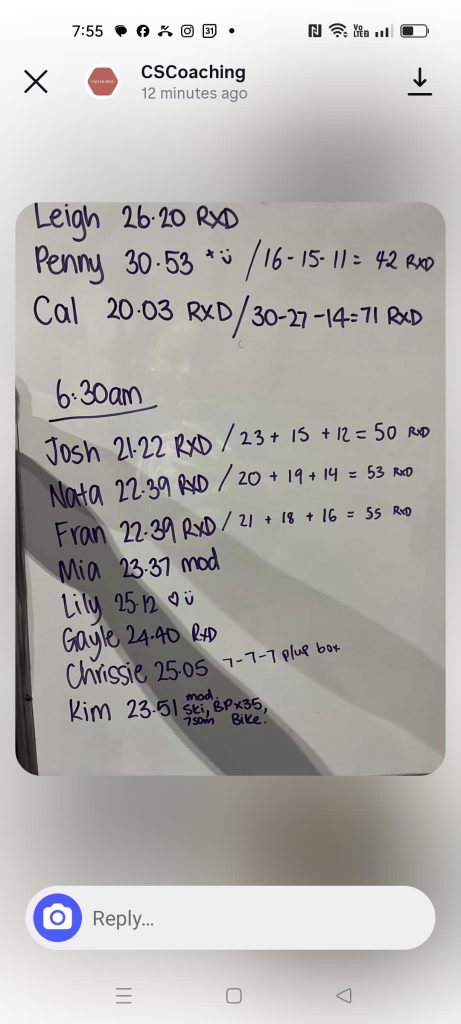 7:55
31
Vo LTE
CSCoaching
12 minutes ago
Leigh 26.20 RXD
Penny 30.53 * / 16-15-11= 42 RXD
Cal 20.03 RXD/30-27-14=71 RXD
6:30am
Josh 21.22 RXD / 23 + 15 + 12 = 50 RXD
Nata 22.39 RXD / 20 + 19 + 14 = 53 RXD
Fran 22.39 RXD / 21 + 18 + 16 = 55 RXD
Mia 23.37 mod
Lily 25.12
Gayle 24.40 RXD
Chrissie 25.05 7-7-7 plus box
Kim 23.51 mod
Ski, BPx35,
750m Bike.
Reply...